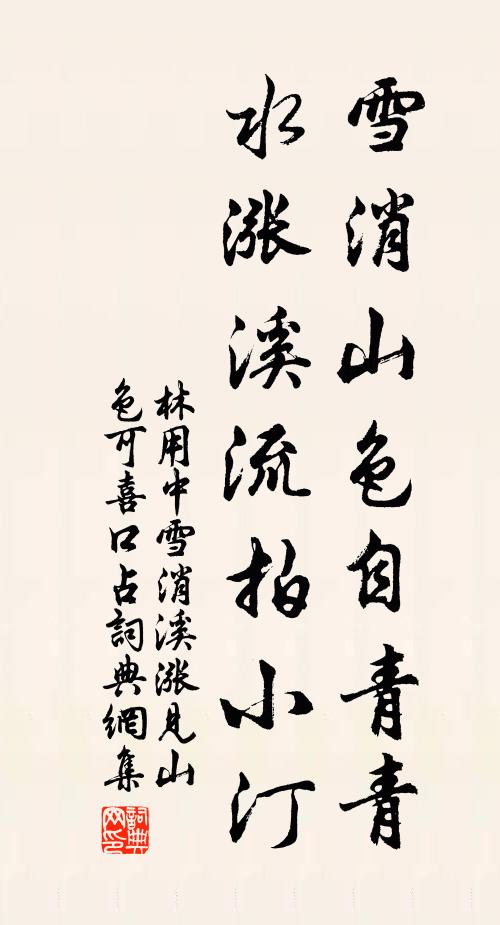 雪消山色自青青
水漲溪流拍小汀
林用中雪消溪漲見山
色可喜口占詞典網集
詞典
网印